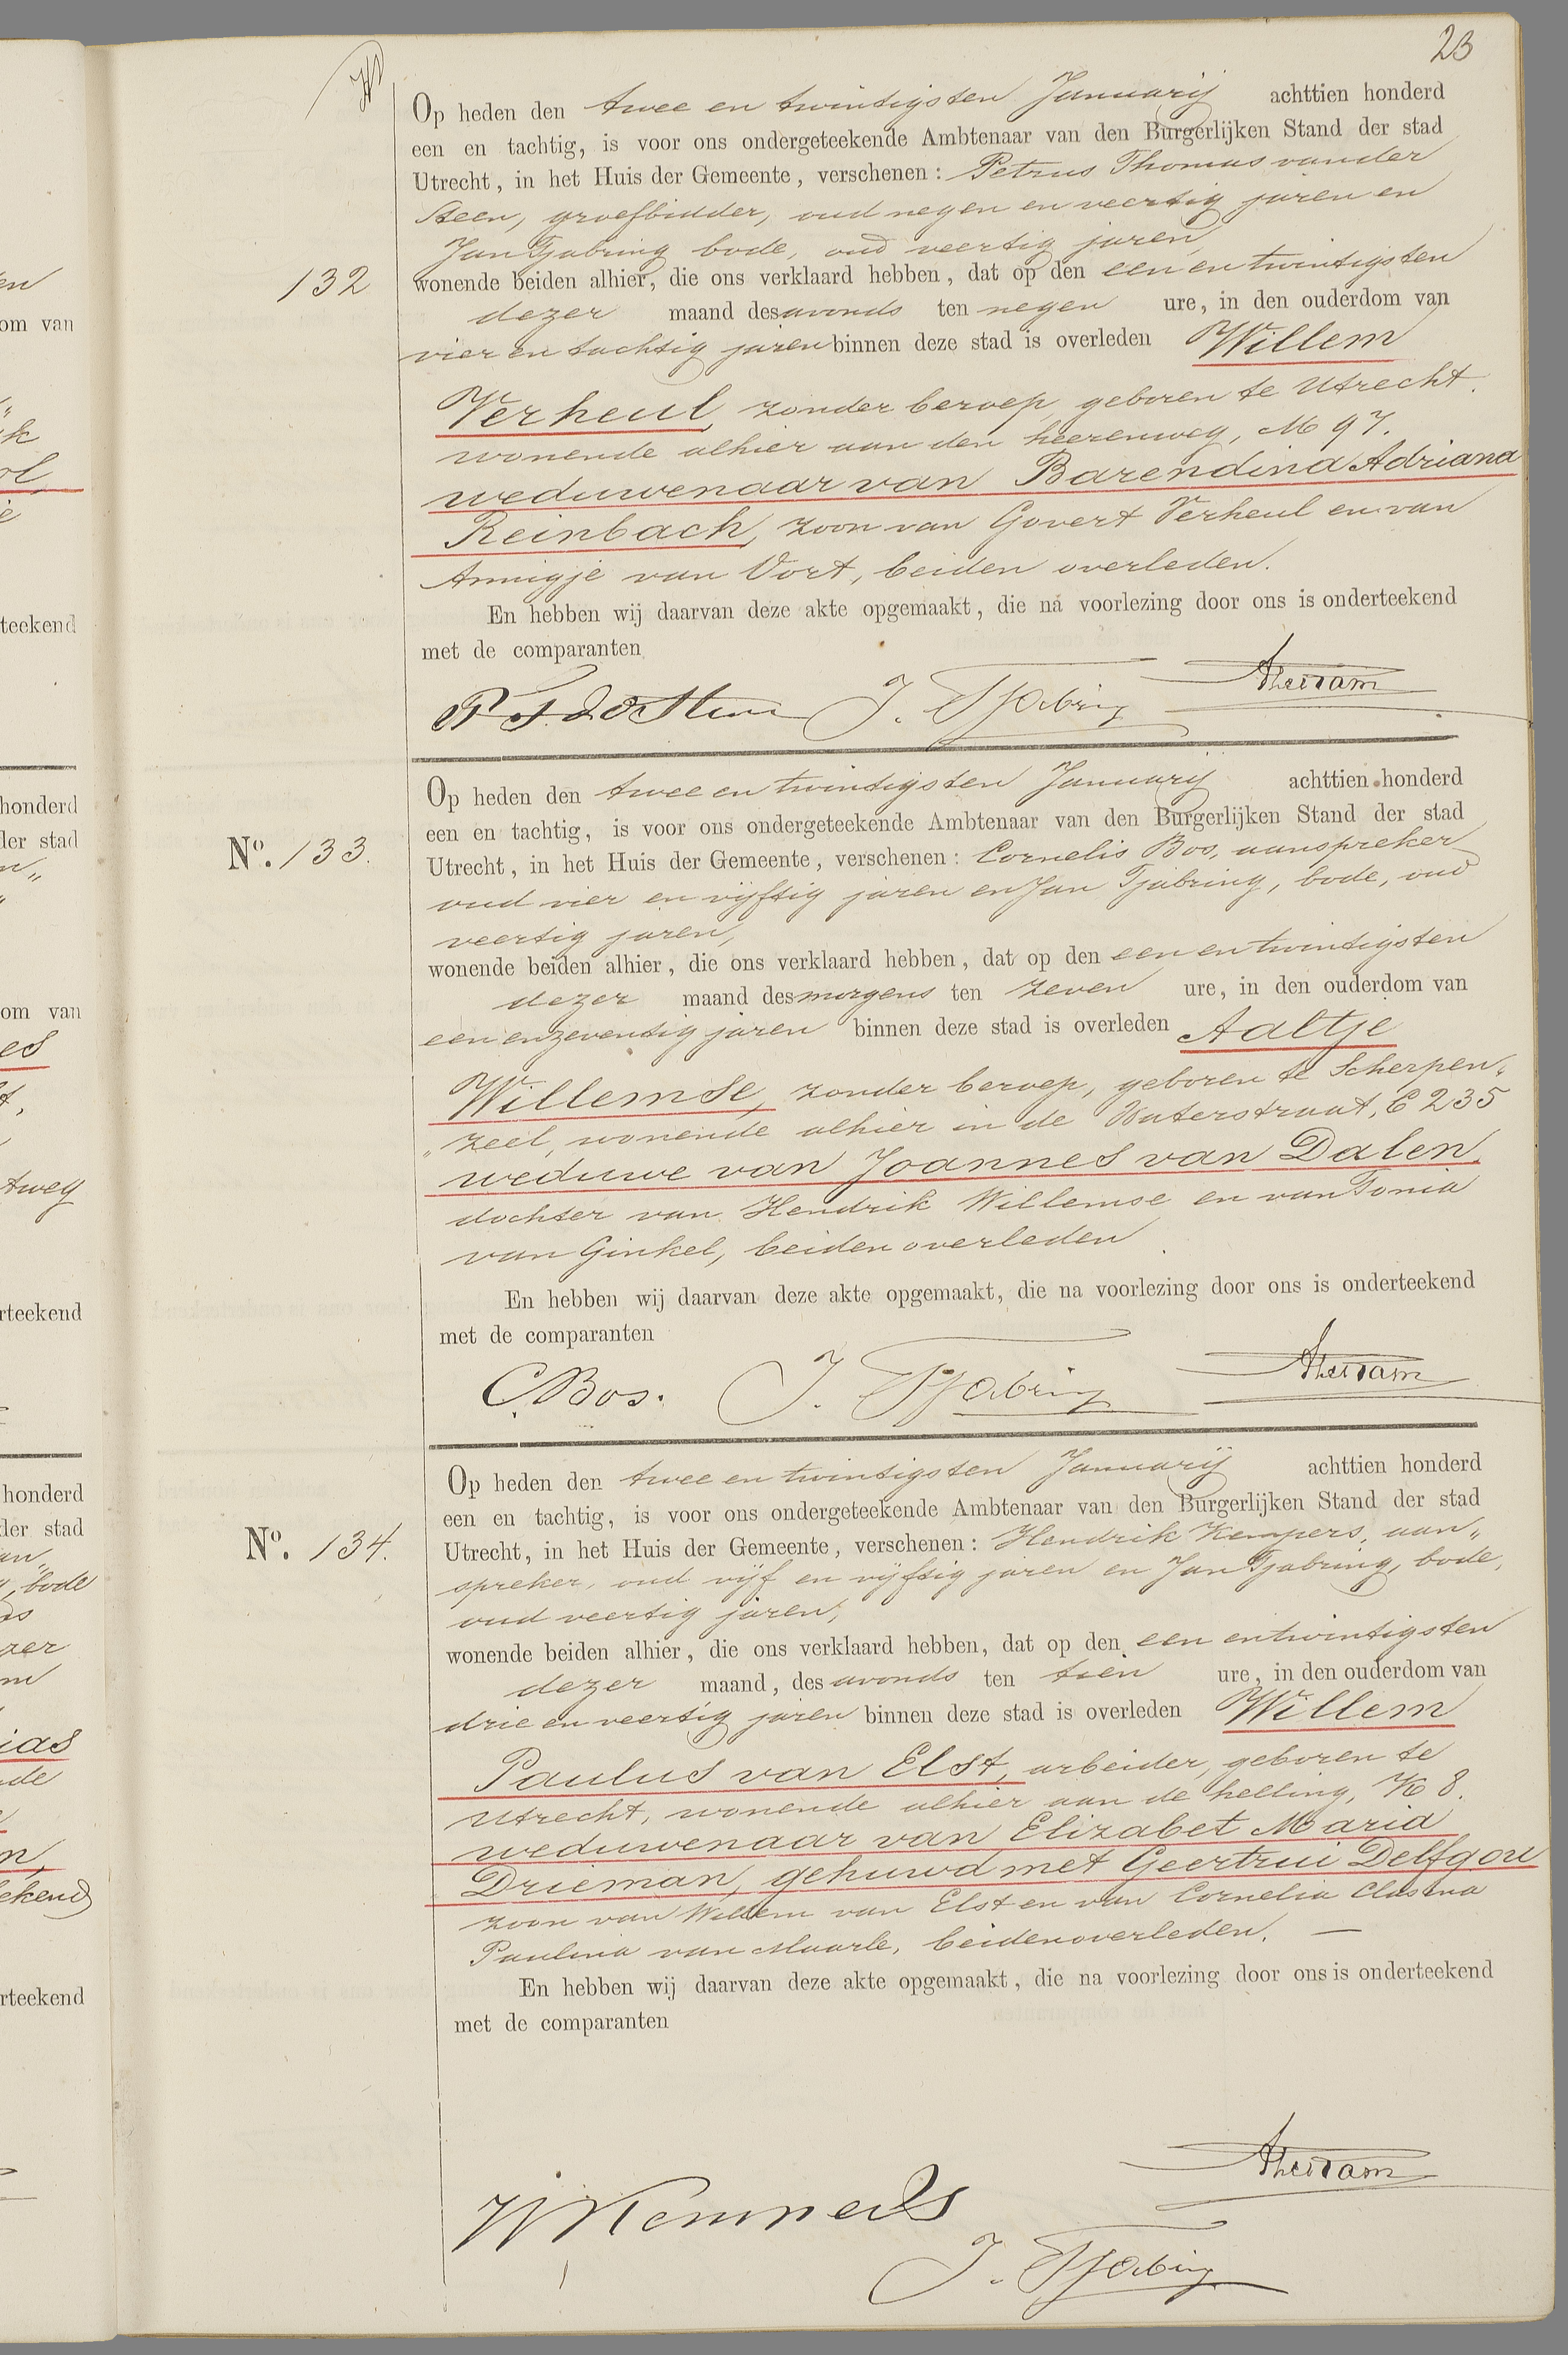 23
Op heden den twee en twintigsten Januarij achttien honderd
een en tachtig, is voor ons ondergeteekende Ambtenaar van den Burgerlijken Stand der stad
Utrecht, in het Huis der Gemeente, verschenen: Petrus Thomas vander
Steen, groefbidder, oud negen en veertig jaren en
Jan Tjabring bode, oud veertig jaren,
132
wonende beiden alhier, die ons verklaard hebben, dat op den een en twintigsten
dezer maand des avonds ten negen ure, in den ouderdom van
vier en tachtig jaren binnen deze stad is overleden Willem
Verheul, zonder beroep, geboren te Utrecht.
wonende alhier aan den heerenweg, M 97.
weduwenaar van Barendina Adriana
Reinbach, zoon van Govert Verheul en van
Annigje van Vort, beiden overleden.
En hebben wij daarvan deze akte opgemaakt, die na voorlezing door ons is onderteekend
met de comparanten
J. Tjabring
Op heden den twee en twintigsten Januarij achttien honderd
een en tachtig, is voor ons ondergeteekende Ambtenaar van den Burgerlijken Stand der stad
No. 133.
Utrecht, in het Huis der Gemeente, verschenen: Cornelis Bos, aanspreker
oud vier en vijftig jaren en Jan Tjabring, bode, oud
veertig jaren,
wonende beiden alhier, die ons verklaard hebben, dat op den een en twintigsten
dezer maand des morgens ten zeven ure, in den ouderdom van
een en zeventig jaren binnen deze stad is overleden Aaltje
Willemse, zonder beroep, geboren te Scherpen„
„zeel, wonende alhier in de Waterstraat, C 235
weduwe van Joannes van Dalen,
dochter van Hendrik Willemse en van Tonia
van Ginkel, beiden overleden
En hebben wij daarvan deze akte opgemaakt, die na voorlezing door ons is onderteekend
met de comparanten
C. Bos. J. Tjabring
Op heden den twee en twintigsten Januarij achttien honderd
een en tachtig, is voor ons ondergeteekende Ambtenaar van den Burgerlijken Stand der stad
No. 134.
Utrecht, in het Huis der Gemeente, verschenen: Hendrik Kempers, aan„
spreker, oud vijf en vijftig jaren en Jan Tjabring, bode,
oud veertig jaren,
wonende beiden alhier, die ons verklaard hebben, dat op den een en twintigsten
dezer maand, des avonds ten tien ure, in den ouderdom van
drie en veertig jaren binnen deze stad is overleden Willem
Paulus van Elst, arbeider, geboren te
Utrecht, wonende alhier aan de helling, K 8.
weduwenaar van Elizabet Maria
Drieman, gehuwd met Geertrui Delfgou
zoon van Willem van Elst en van Cornelia Clasina
Paulina van Maarle, beiden overleden. —
En hebben wij daarvan deze akte opgemaakt, die na voorlezing door ons is onderteekend
met de comparanten
J. Tjabring